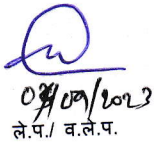 07/09/2023
ले.प./ व.ले.प.